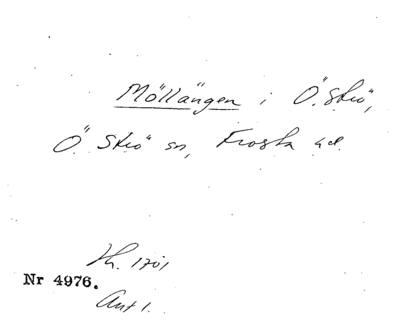 Möllängen i Ö. Strö,
Ö. Strö sn, Frosta hd.
Lh. 1701
Nr 4976.
Ant 1.